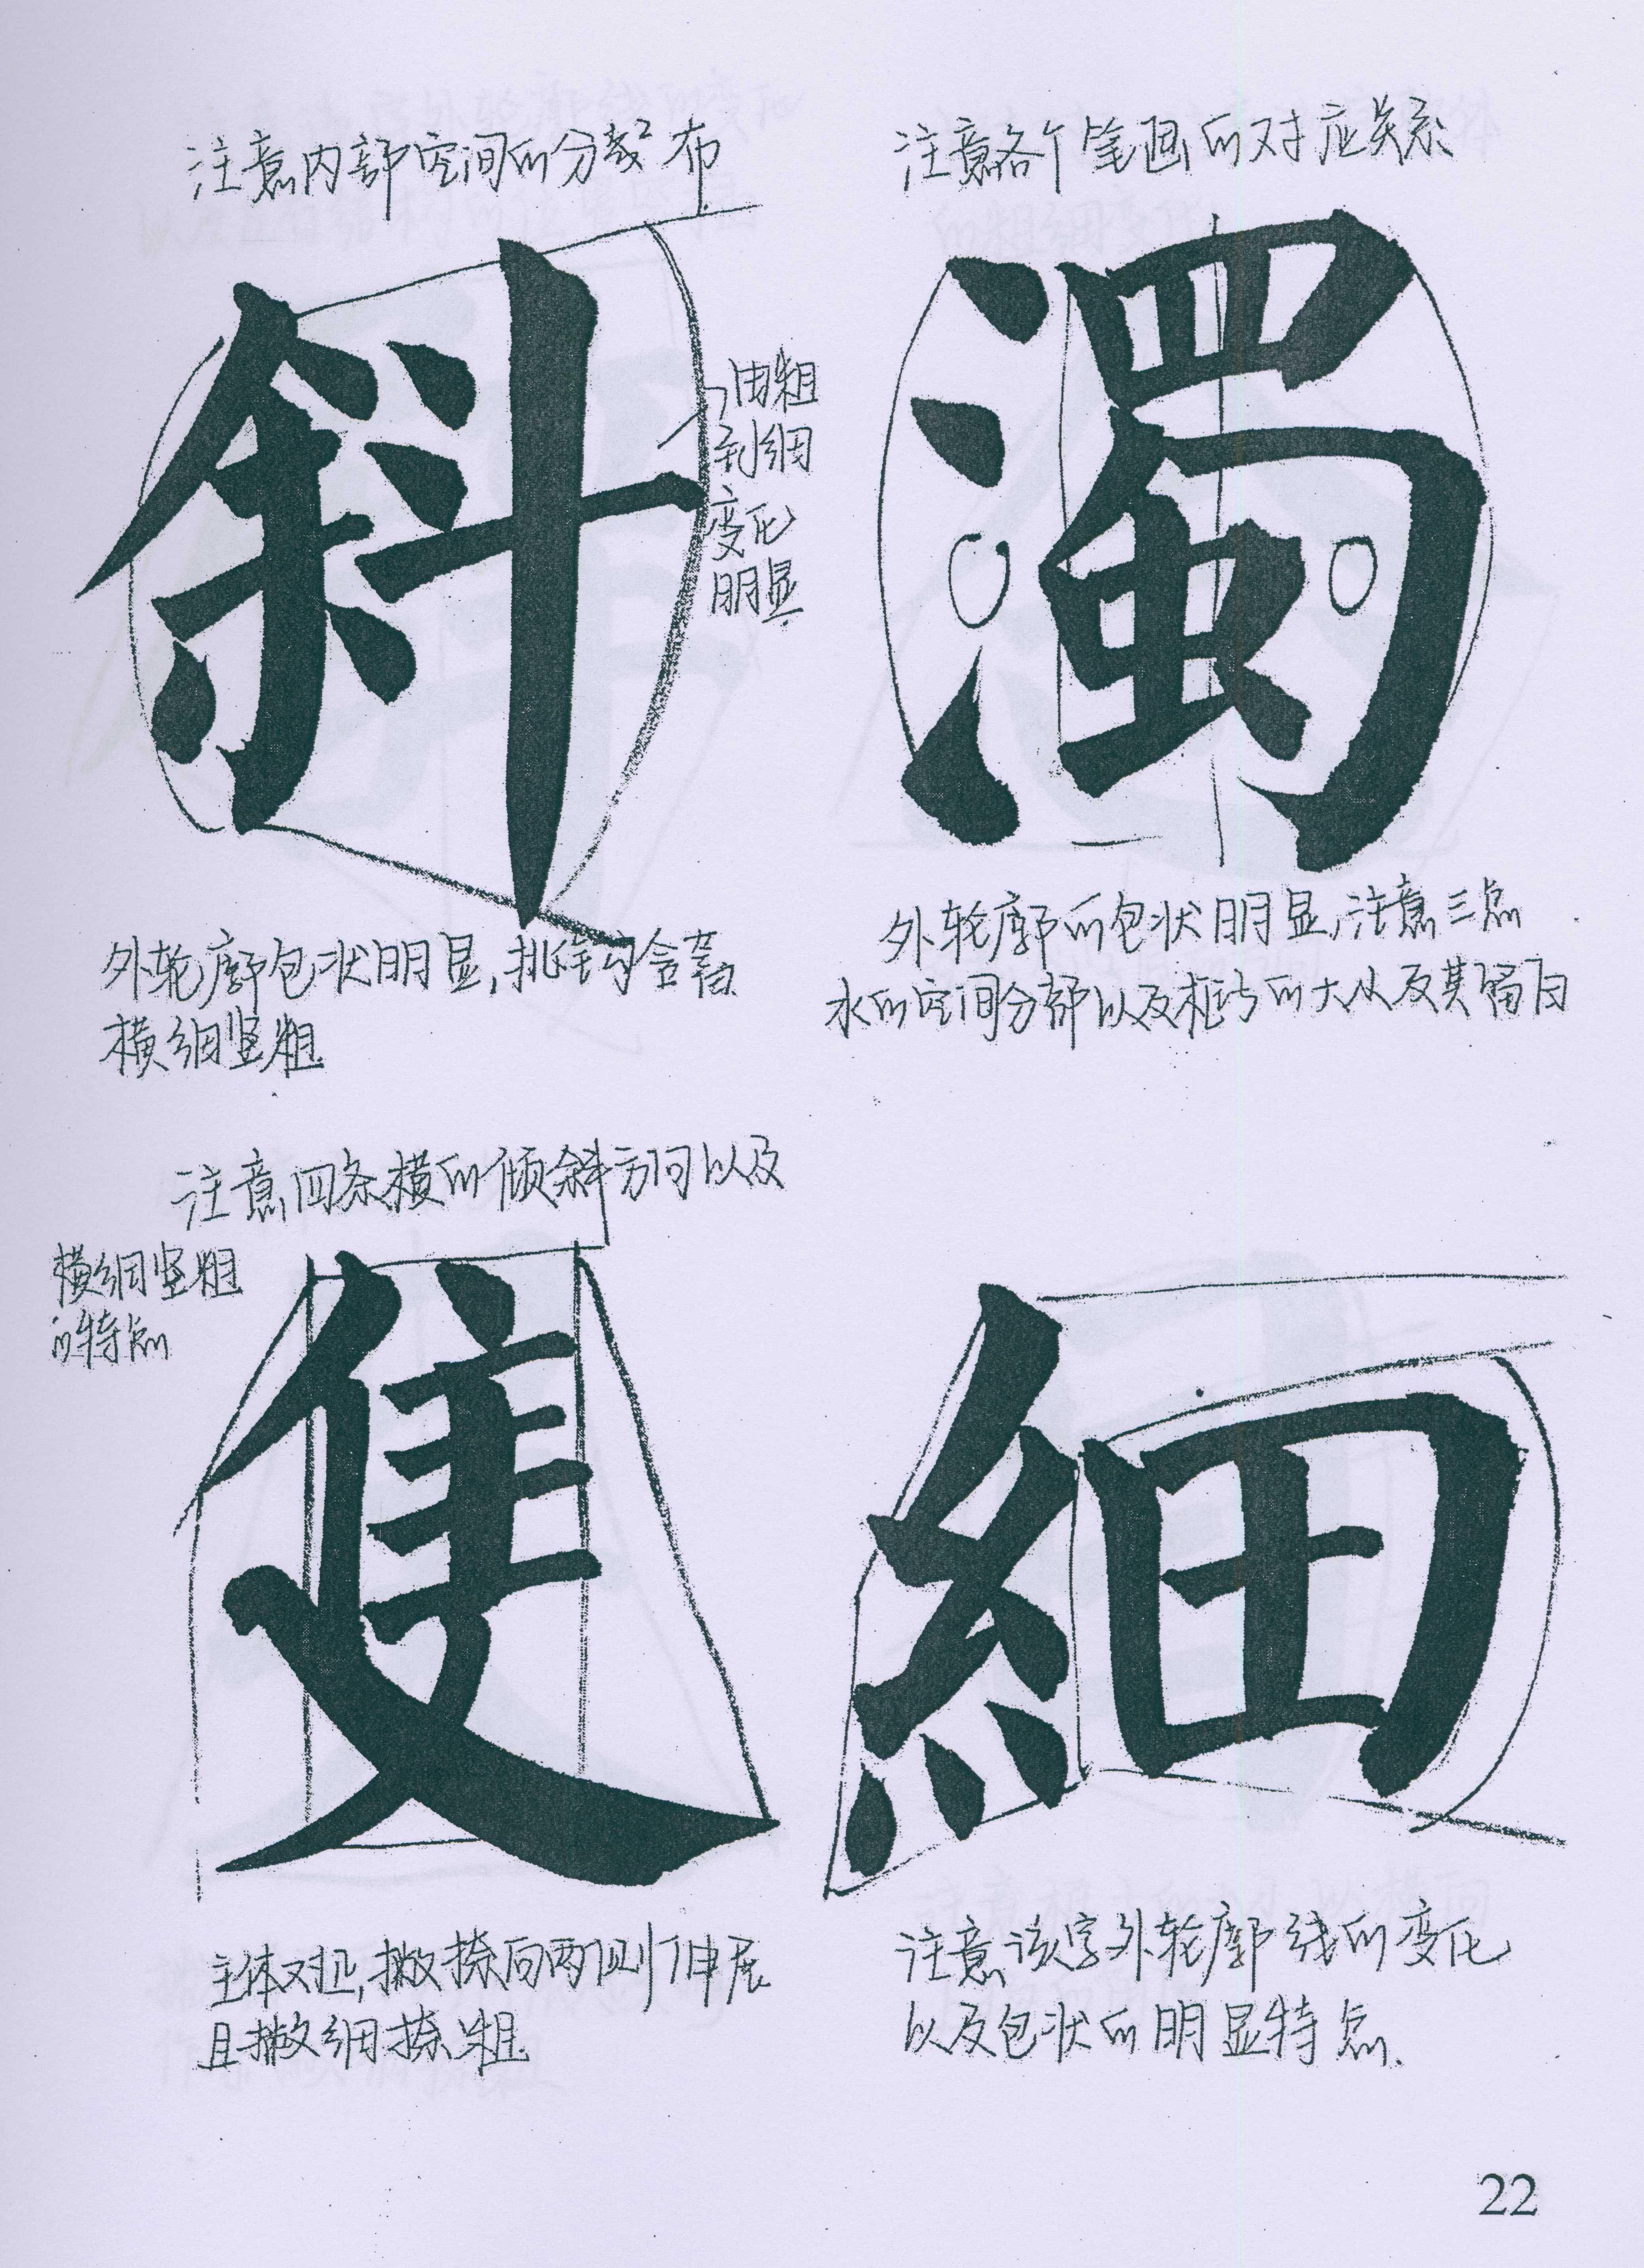 注意内部空间的分布
斜
由粗
到细
变化
明显
外轮廓包状明显,挑钩含蓄
横细竖粗
注意各个笔画的对应关系
濁
外轮廓的包状明显,注意三点
水的空间分部以及框与的大从及其留白
注意四条横的倾斜方向以及
横细竖粗
的特点
隻
主体对正,撇捺向两侧伸展
且撇细捺粗
細
注意该字外轮廓线的变化
以及包状的明显特点.
22